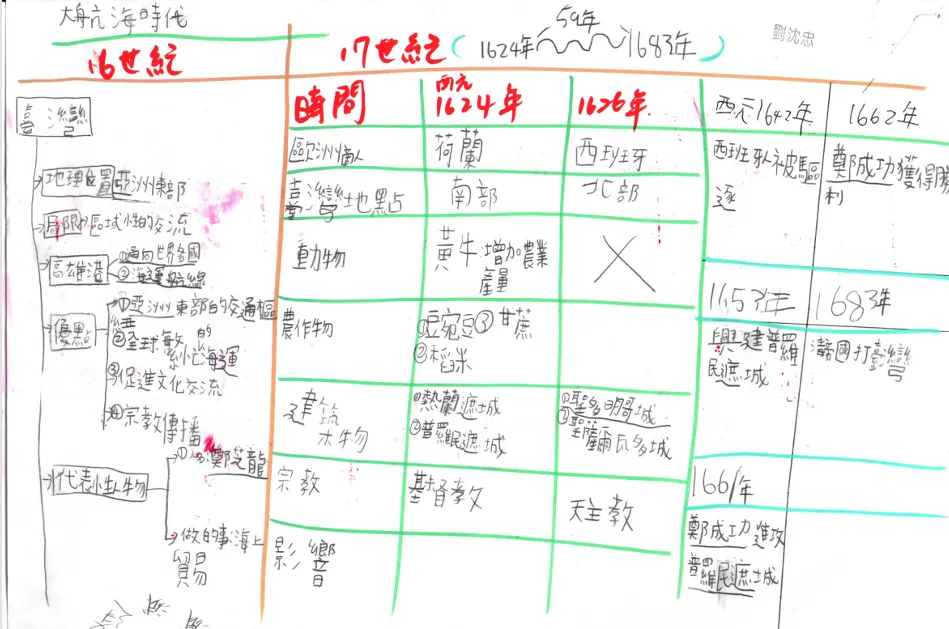 大航海時代
劉沈忠
59年
16世紀
17世紀(1624年 1683年)
臺灣
地理位置 亞洲東部
局限 區域性的交流
高雄港 ①通向世界各國
②海運航線
優點 ①亞洲東部的交通樞
紐
②全球繁忙的海運
③促進文化交流
④宗教傳播
代表性人物
①鄭芝龍
做的事:海上
貿易
時間 西元1624年 1626年
歐洲人 荷蘭 西班牙
臺灣地點 南部 北部
動物 黃牛:增加農業
產量
農作物 ①豌豆③甘蔗
②稻米
建築
木物 ①熱蘭遮城
②普羅民遮城
①聖多明哥城
②聖薩爾瓦多城
宗教 基督教 天主教
影響
西元1642年 1662年
西班牙人被驅
逐
鄭成功獲得勝
利
1653年 1683年
興建普羅
民遮城
清國打臺灣
1661年
鄭成功進攻
普羅民遮城